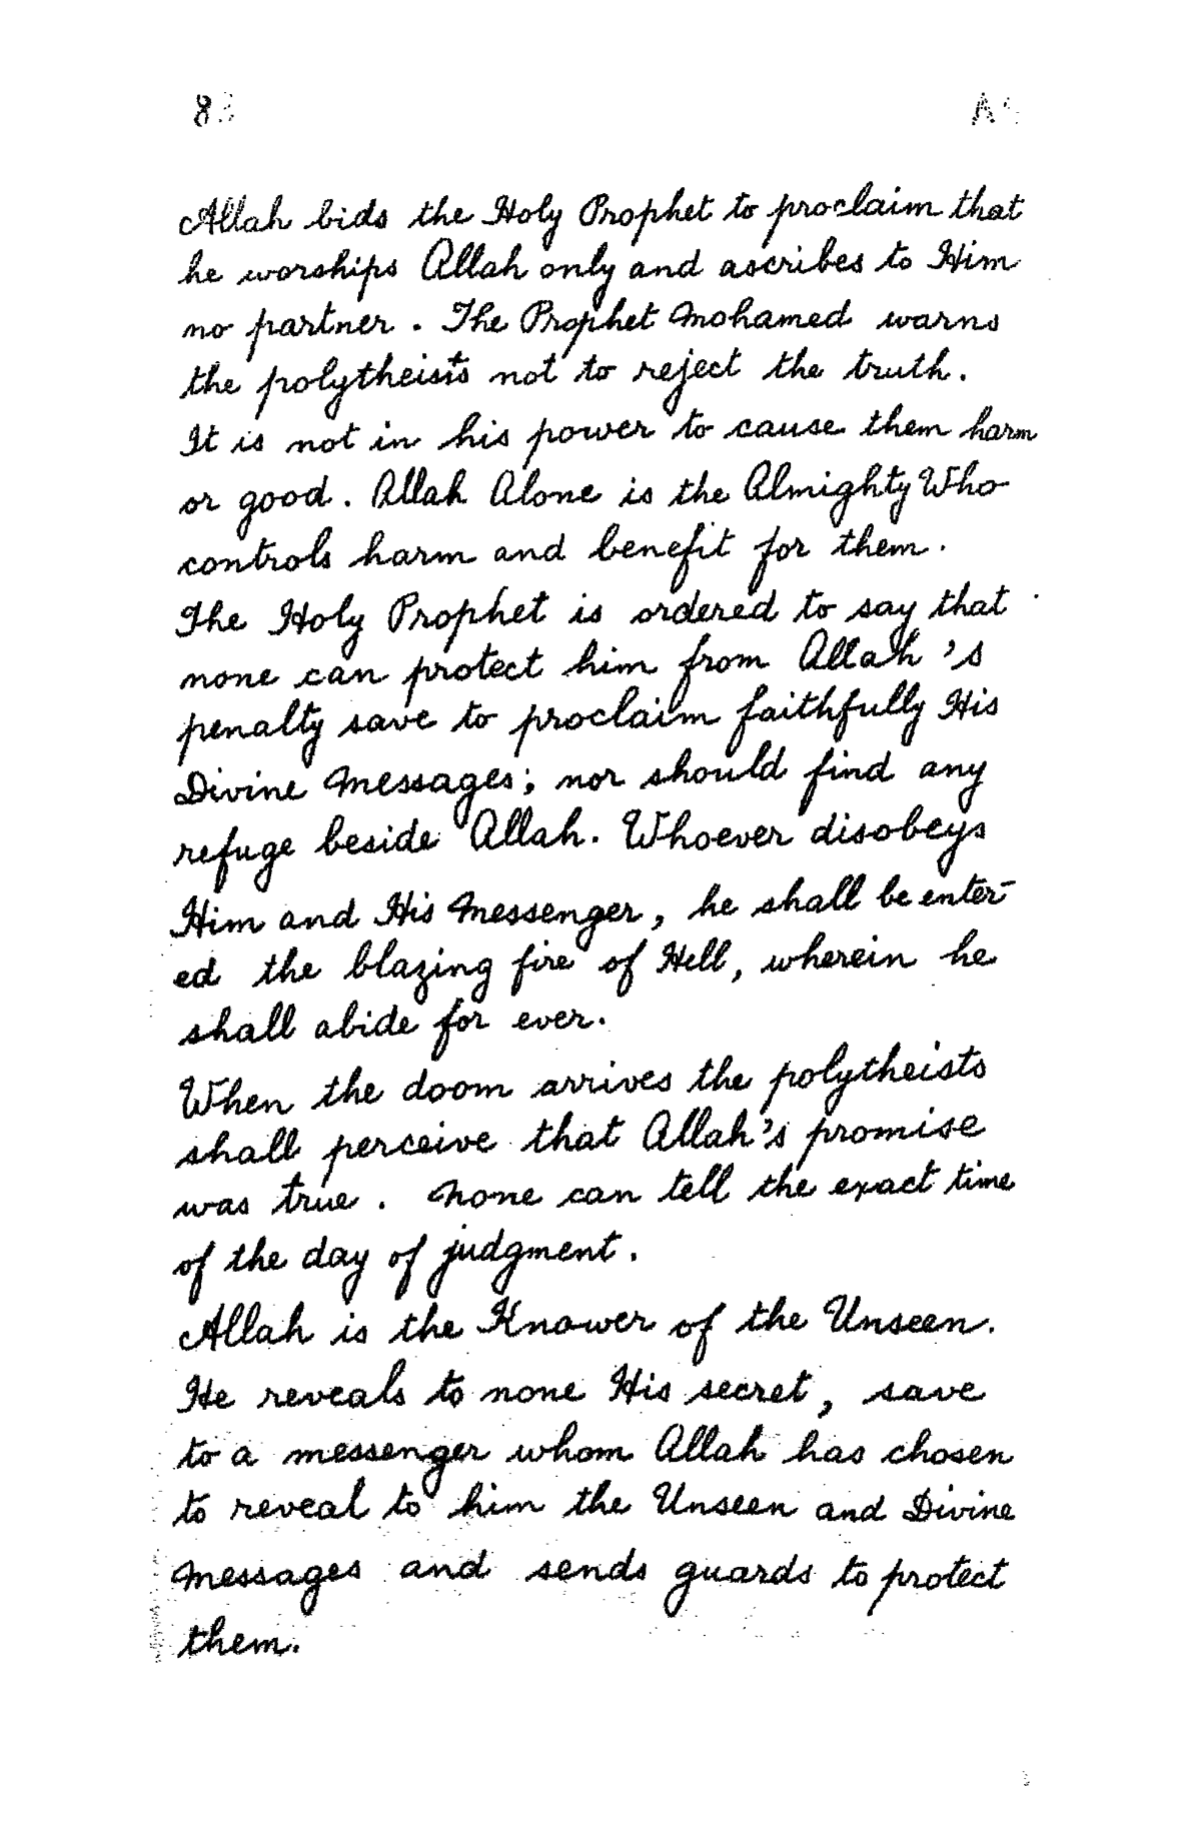 Allah bids the Holy Prophet to proclaim that
he worships Allah only and ascribes to Him
no partner. The Prophet Mohamed warns
the polytheists not to reject the truth.
It is not in his power to cause them harm
or good. Allah Alone is the Almighty Who
controls harm and benefit for them.
The Holy Prophet is ordered to say that
none can protect him from Allah's
penalty save to proclaim faithfully His
Divine Messages; nor should find any
refuge beside Allah. Whoever disobeys
Him and His Messenger, he shall be enter-
ed the blazing fire of Hell, wherein he
shall abide for ever.
When the doom arrives the polytheists
shall perceive that Allah's promise
was true. None can tell the exact time
of the day of judgment.
Allah is the Knower of the Unseen.
He reveals to none His secret, save
to a messenger whom Allah has chosen
to reveal to him the Unseen and Divine
Messages and sends guards to protect
them.